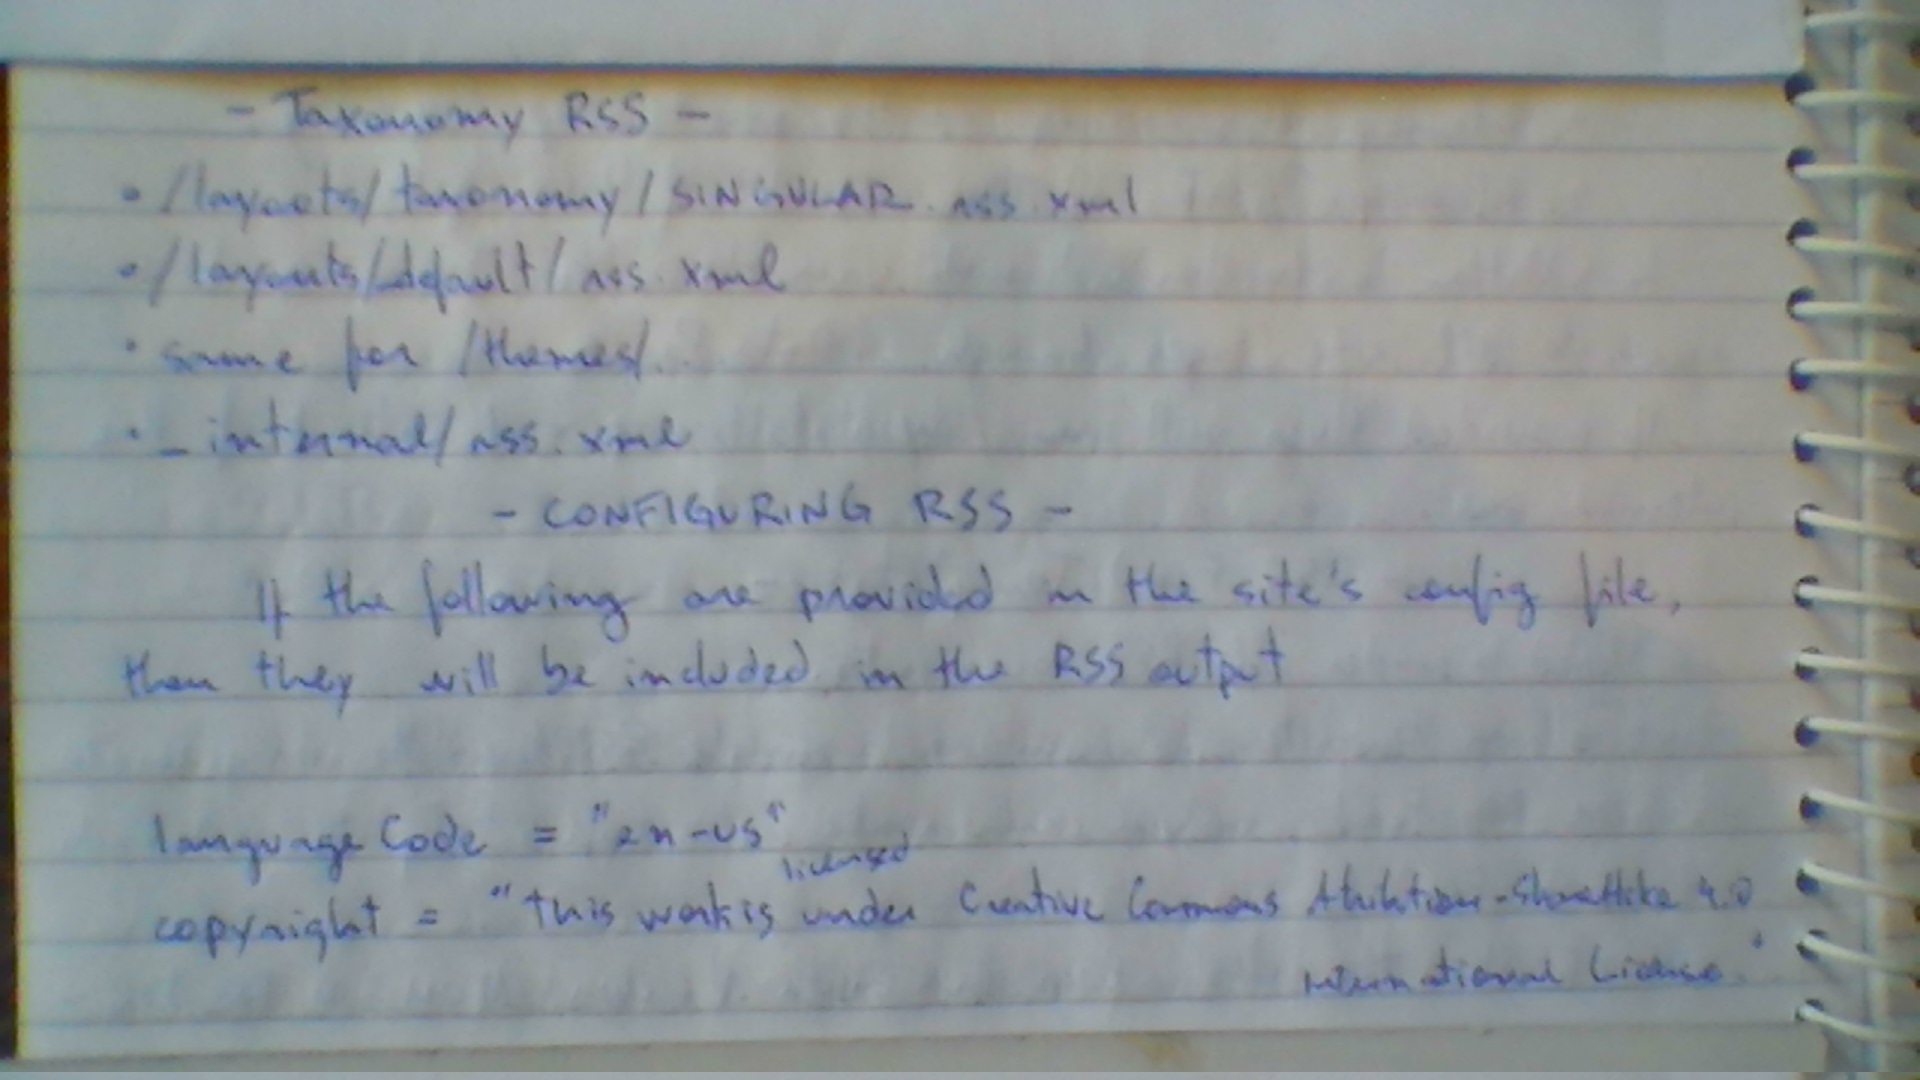 - Taxonomy RSS -
• /layouts/taxonomy/SINGULAR.rss.xml
• /layouts/_default/rss.xml
• same for /themes/...
• _internal/rss.xml
- CONFIGURING RSS -
If the following are provided in the site's config file,
then they will be included in the RSS output
languageCode = "en-us"
licensed
copyright = "this work is under Creative Commons Attribution-ShareAlike 4.0
International License."